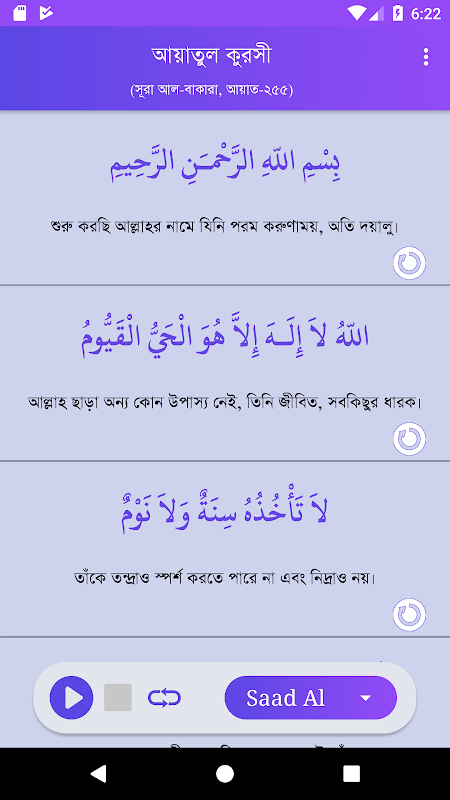 6:22
আয়াতুল কুরসী
(সূরা আল-বাকারা, আয়াত-২৫৫)
بِسْمِ اللّهِ الرَّحْمـَنِ الرَّحِيمِ
শুরু করছি আল্লাহর নামে যিনি পরম করুণাময়, অতি দয়ালু।
اللّهُ لاَ إِلَـهَ إِلاَّ هُوَ الْحَيُّ الْقَيُّومُ
আল্লাহ ছাড়া অন্য কোন উপাস্য নেই, তিনি জীবিত, সবকিছুর ধারক।
لاَ تَأْخُذُهُ سِنَةٌ وَلاَ نَوْمٌ
তাঁকে তন্দ্রাও স্পর্শ করতে পারে না এবং নিদ্রাও নয়।
Saad Al